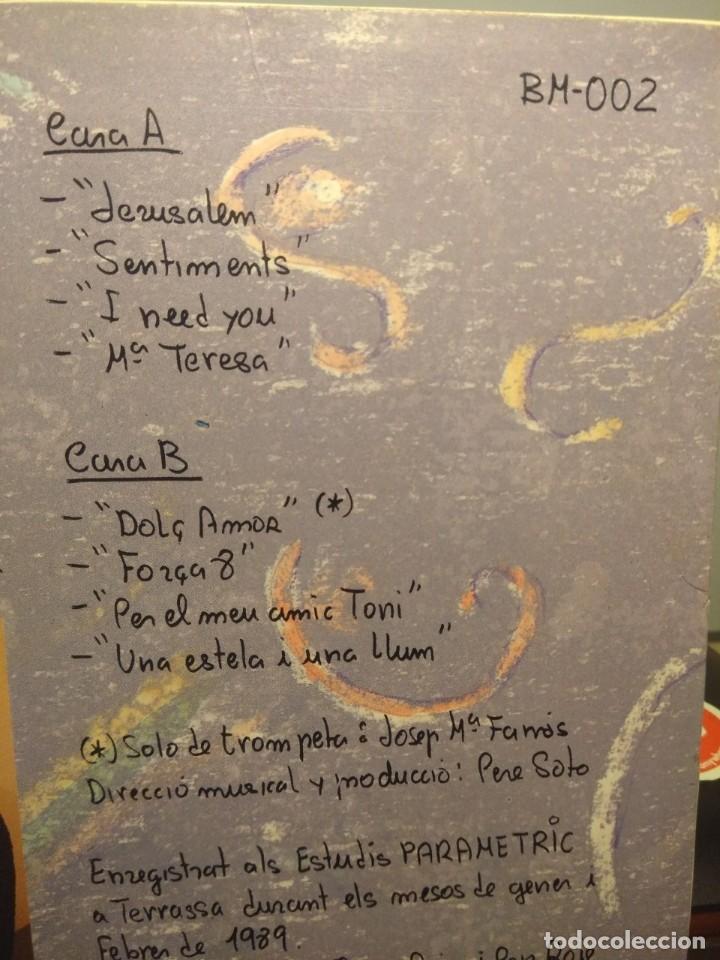 BM-002
Cara A
- "Jerusalem"
- "Sentiments"
- "I need you"
- "Mª Teresa"
Cara B
- "Dolç Amor" (*)
- "Força 8"
- "Per el meu amic Toni"
- "Una estela i una llum"
(*) Solo de trompeta: Josep Mª Farràs
Direcció musical y producció: Pere Soto
Enregistrat als Estudis PARAMETRIC
a Terrassa durant els mesos de gener i
Febrer de 1989.
todocoleccion